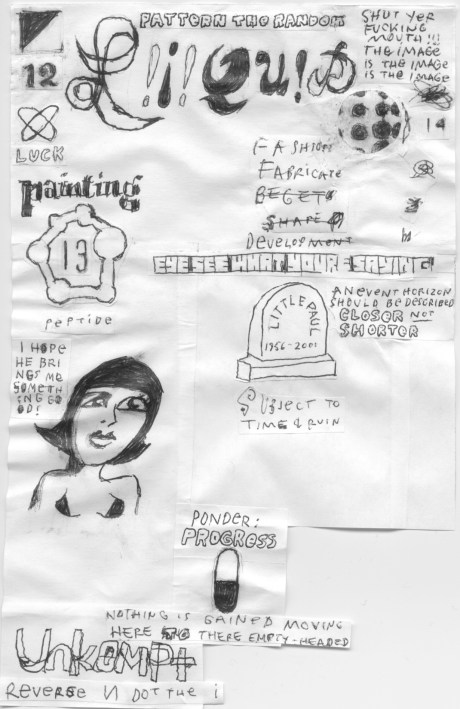 PATTERN THE RANDOM
SHUT YER
FUCKING
MOUTH!!!
THE IMAGE
IS THE IMAGE
IS THE IMAGE
12
L!i!QUiD
14
LUCK
FASHION
FABRICATE
BEGETS
SHAPE
DEVELOPMENT
painting
13
PEPTIDE
EYE SEE WHAT YOUR SAYING
AN EVENT HORIZON
SHOULD BE DESCRIBED
CLOSER NOT
SHORTER
LITTLE PAUL
1956-2001
SUBJECT TO
TIME & RUIN
I HOPE
HE BRI
NGS ME
SOMETH
ING GO
OD!
PONDER:
PROGRESS
NOTHING IS GAINED MOVING
HERE TO THERE EMPTY-HEADED
UnKempt
Reverse N DOT THE i